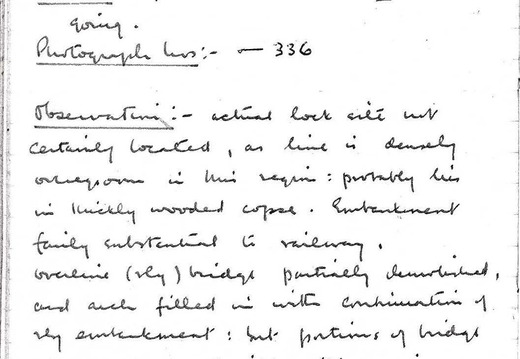 going.
Photograph Nos:- — 336
Observation:- actual lock site not
certainly located, as line is densely
overgrown in this region: probably lies
in thickly wooded copse. Embankment
fairly substantial to railway.
Overline (rly) bridge partially demolished,
and arch filled in with continuation of
rly embankment: but portions of bridge